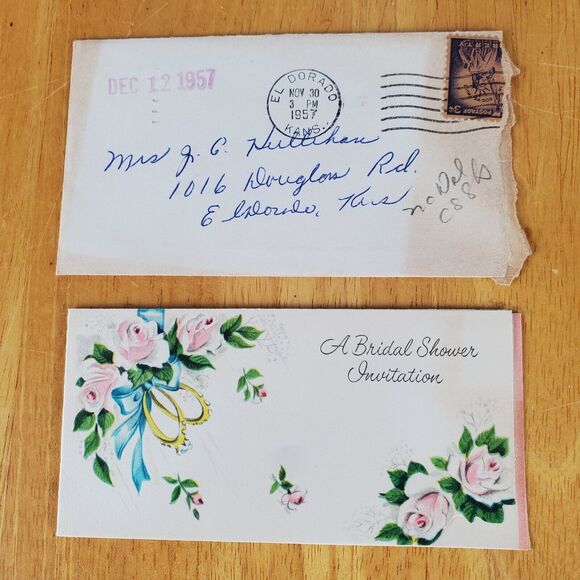 DEC 12 1957
EL DORADO
NOV 30
3 PM
1957
KANS.
POSTAGE 3¢
LIBERTY
Mrs J. C. Hullihan
1016 Douglas Rd.
El Dorado, Kns
A Bridal Shower
Invitation